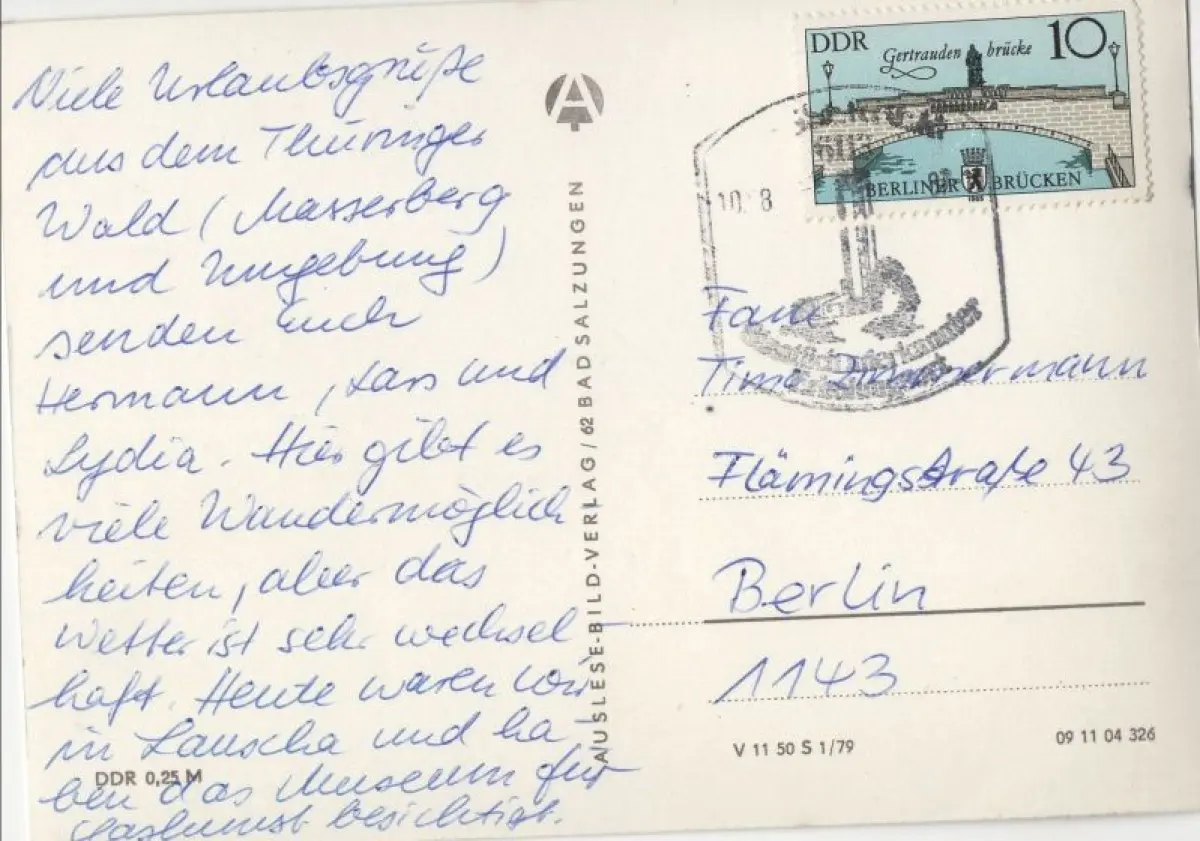 Viele Urlaubsgrüße
aus dem Thüringer
Wald (Masserberg
und Umgebung)
senden Euch
Hermann, Lars und
Lydia. Hier gibt es
viele Wandermöglich
keiten, aber das
Wetter ist sehr wechsel-
haft. Heute waren wir
in Lauscha und ha-
ben das Museum für
Glaskunst besichtigt.
DDR 0,25 M
A
AUSLESE-BILD-VERLAG/62 BAD SALZUNGEN
DDR
Gertrauden brücke
10
BERLINER BRÜCKEN
1985
10. 8
Fam.
Timo Zimmermann
Flämingstraße 43
Berlin
1143
V 11 50 S 1/79
09 11 04 326